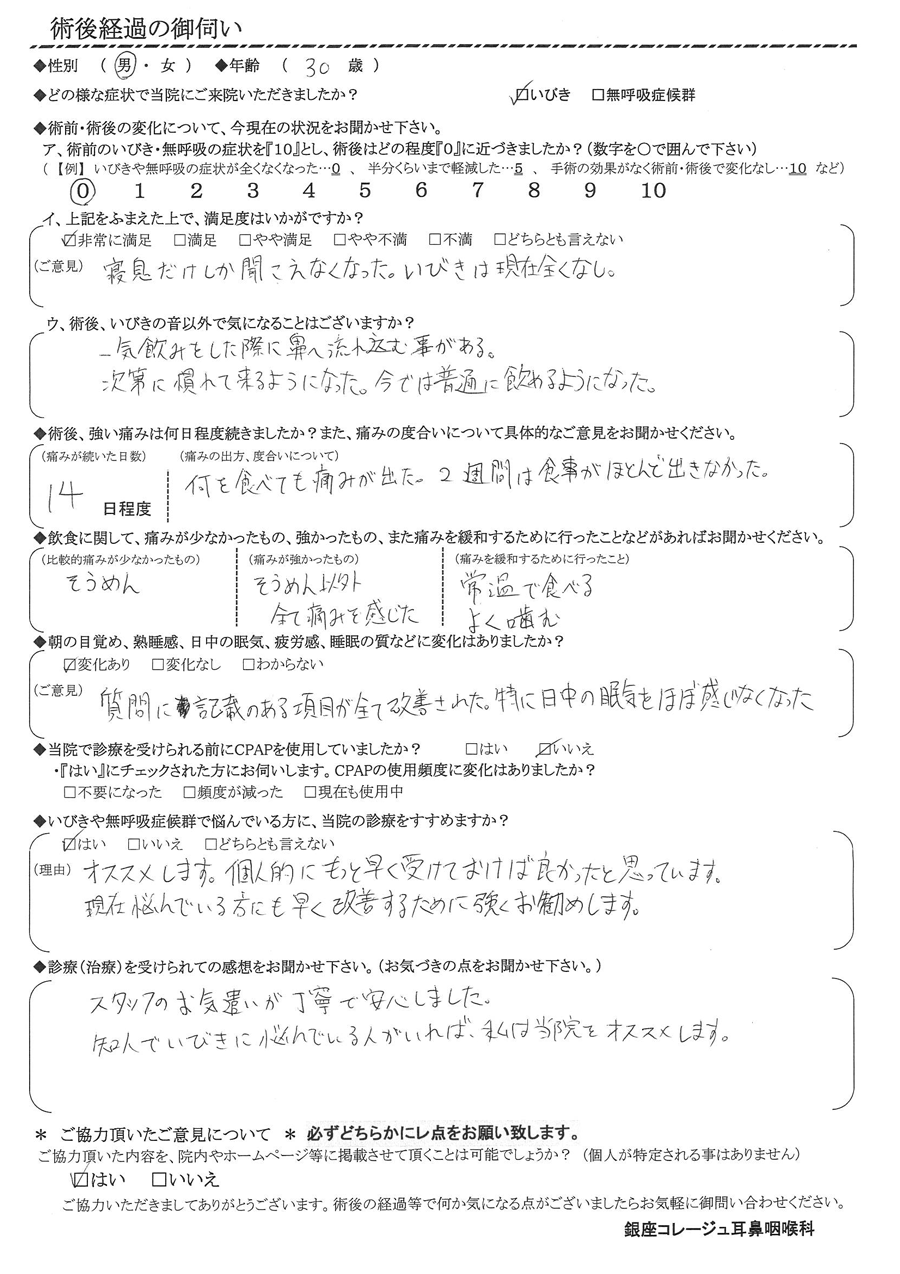 術後経過の御伺い
◆性別 （ 男 ・ 女 ） ◆年齢 （ 30 歳 ）
◆どの様な症状で当院にご来院いただきましたか？ ☑いびき □無呼吸症候群
◆術前・術後の変化について、今現在の状況をお聞かせ下さい。
ア、術前のいびき・無呼吸の症状を『10』とし、術後はどの程度『0』に近づきましたか？（数字を○で囲んで下さい）
（【例】 いびきや無呼吸の症状が全くなくなった…0 、 半分くらいまで軽減した…5 、 手術の効果がなく術前・術後で変化なし…10 など）
0 1 2 3 4 5 6 7 8 9 10
イ、上記をふまえた上で、満足度はいかがですか？
☑非常に満足 □満足 □やや満足 □やや不満 □不満 □どちらとも言えない
（ご意見） 寝息だけしか聞こえなくなった。いびきは現在全くなし。
ウ、術後、いびきの音以外で気になることはございますか？
一気飲みをした際に鼻へ流れ込む事がある。
次第に慣れて来るようになった。今では普通に飲めるようになった。
◆術後、強い痛みは何日程度続きましたか？また、痛みの度合いについて具体的なご意見をお聞かせください。
（痛みが続いた日数） （痛みの出方、度合いについて）
14 日程度 何を食べても痛みが出た。2週間は食事がほとんど出きなかった。
◆飲食に関して、痛みが少なかったもの、強かったもの、また痛みを緩和するために行ったことなどがあればお聞かせください。
（比較的痛みが少なかったもの） （痛みが強かったもの） （痛みを緩和するために行ったこと）
そうめん そうめん以外 常温で食べる
全て痛みを感じた よく噛む
◆朝の目覚め、熟睡感、日中の眠気、疲労感、睡眠の質などに変化はありましたか？
☑変化あり □変化なし □わからない
（ご意見） 質問に記載のある項目が全て改善された。特に日中の眠気をほぼ感じなくなった
◆当院で診療を受けられる前にCPAPを使用していましたか？ □はい ☑いいえ
・『はい』にチェックされた方にお伺いします。CPAPの使用頻度に変化はありましたか？
□不要になった □頻度が減った □現在も使用中
◆いびきや無呼吸症候群で悩んでいる方に、当院の診療をすすめますか？
☑はい □いいえ □どちらとも言えない
（理由） オススメします。個人的にもっと早く受けておけば良かったと思っています。
現在悩んでいる方にも早く改善するために強くお勧めします。
◆診療（治療）を受けられての感想をお聞かせ下さい。（お気づきの点をお聞かせ下さい。）
スタッフのお気遣いが丁寧で安心しました。
知人でいびきに悩んでいる人がいれば、私は当院をオススメします。
＊ ご協力頂いたご意見について ＊ 必ずどちらかにレ点をお願い致します。
ご協力頂いた内容を、院内やホームページ等に掲載させて頂くことは可能でしょうか？ （個人が特定される事はありません）
☑はい □いいえ
ご協力いただきましてありがとうございます。術後の経過等で何か気になる点がございましたらお気軽に御問い合わせください。
銀座コレージュ耳鼻咽喉科